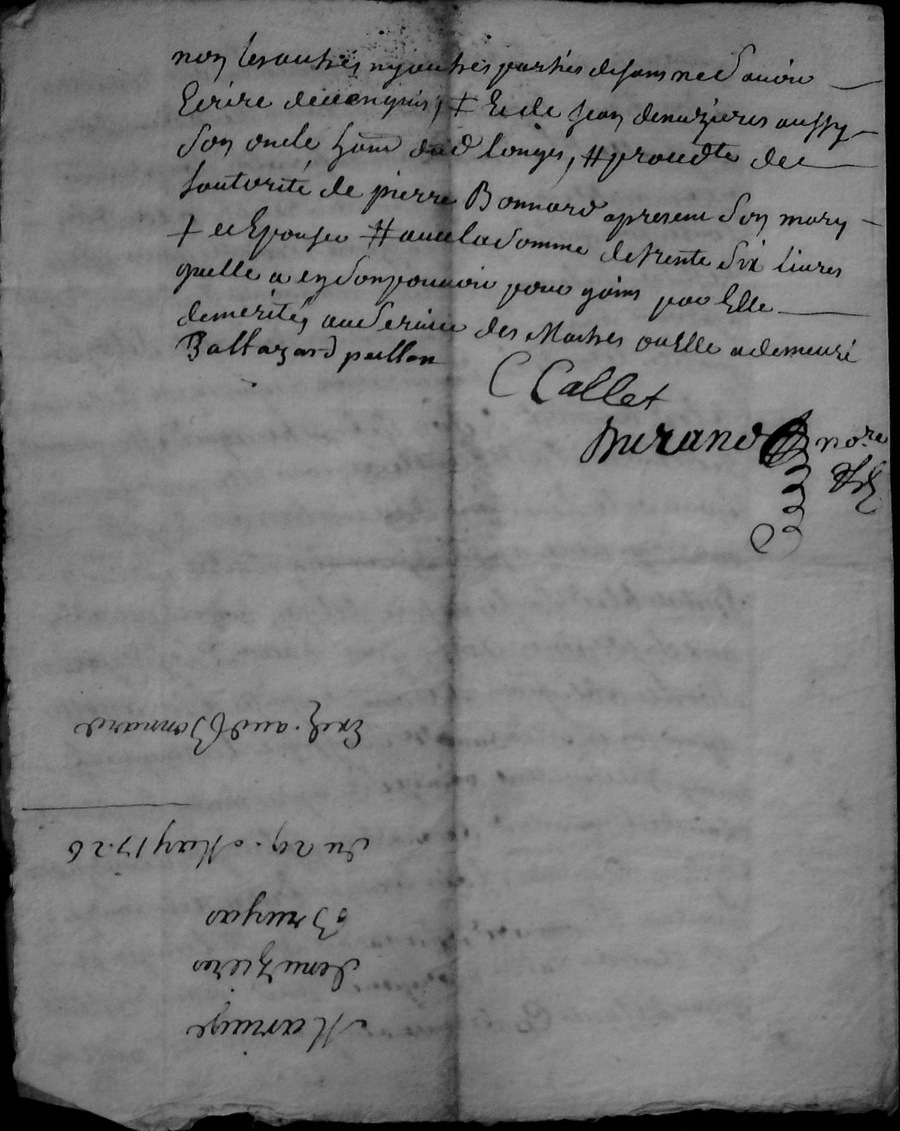 non les autres ny autres parties desans ne Scavoir
Ecrire de ce enquis, ⵐ Et de jean denuzieres aussy
Son oncle hant dud longes, # proudte de
Lautorité de pierre Bonnard apresent Son mary
ⵐ et Epouser # avec la Somme de trente Six livres
quelle a en Son pouvoir pour gains par Elle
demerités au Service des Maitres ou Elle a demeuré
Baltazard paillon
C Callet
Durand no.re
Exp. aud Bonnard
du 29. May 1726
Bruyas
denuzieres
Mariage